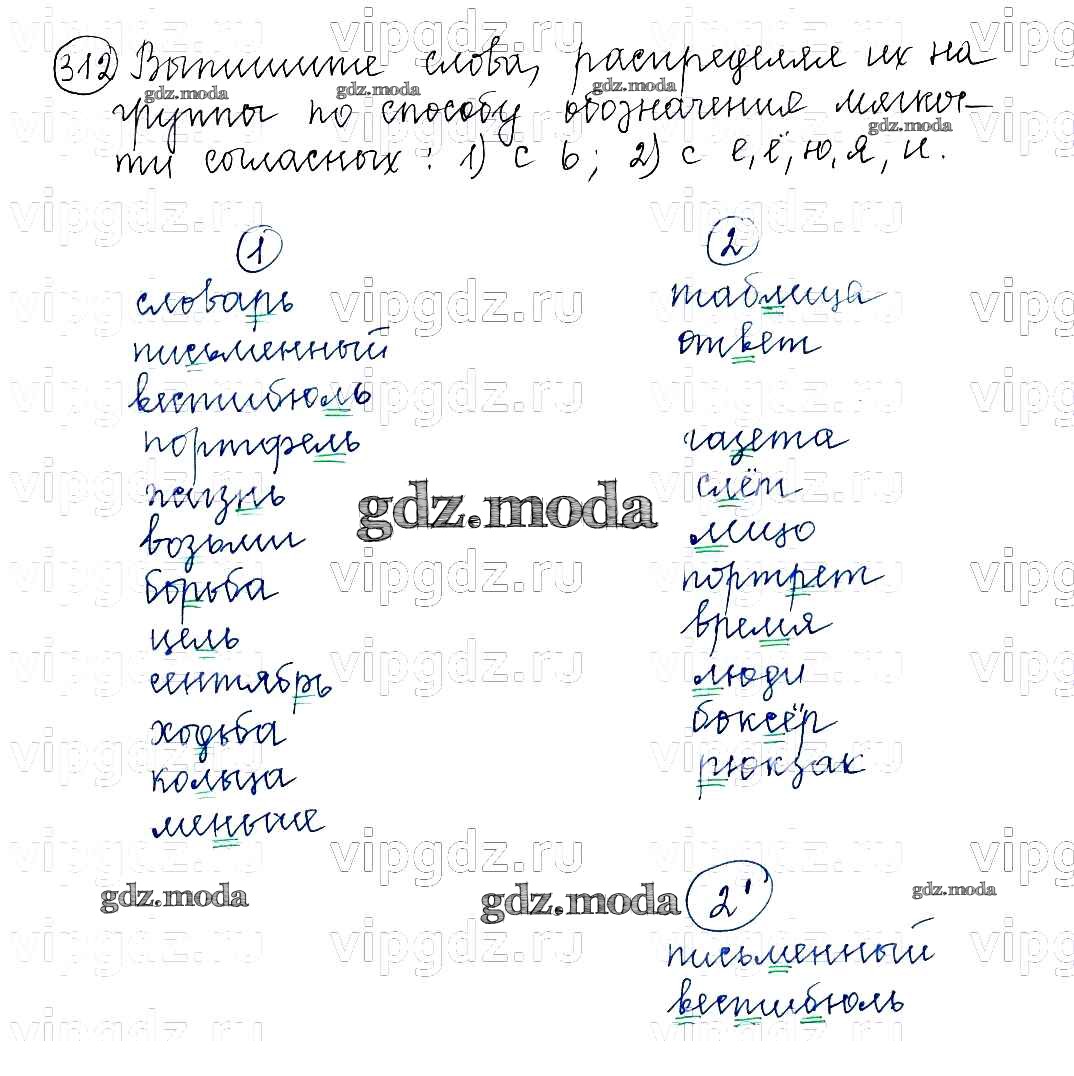 312 Выпишите слова, распределяя их на
группы по способу обозначения мягкос-
ти согласных: 1) с ь; 2) с е, ё, ю, я, и.
1
словарь
письменный
вестибюль
портфель
жизнь
возьми
борьба
цель
сентябрь
ходьба
кольца
меньше
2
таблица
ответ
газета
слёт
лицо
портрет
время
люди
боксёр
рюкзак
2'
письменный
вестибюль
gdz.moda
gdz.moda
gdz.moda
gdz.moda
gdz.moda
gdz.moda
gdz.moda
gdz.moda
vipgdz.ru